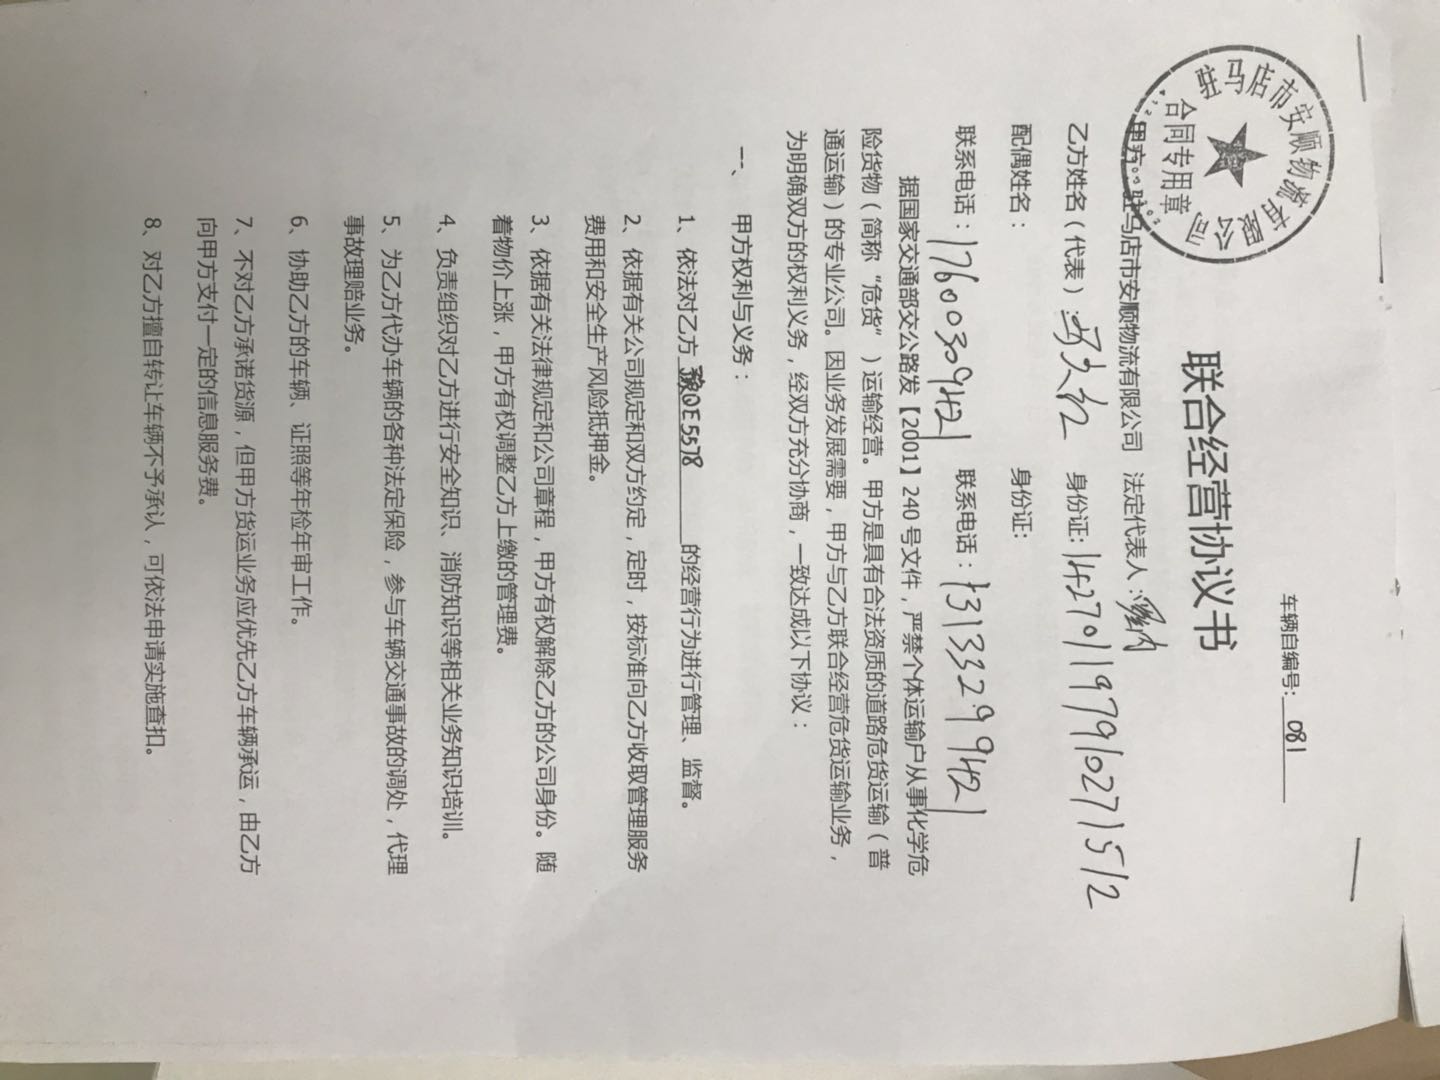 车辆自编号：081
联合经营协议书
驻马店市安顺物流有限公司
合同专用章
甲方：驻马店市安顺物流有限公司 法定代表人：
乙方姓名（代表） 身份证：142701197910271512
配偶姓名： 身份证：
联系电话：17600309421 联系电话：13133299421
据国家交通部交公路发【2001】240号文件，严禁个体运输户从事化学危
险货物（简称“危货”）运输经营。甲方是具有合法资质的道路危货运输（普
通运输）的专业公司。因业务发展需要，甲方与乙方联合经营危货运输业务，
为明确双方的权利义务，经双方充分协商，一致达成以下协议：
一、 甲方权利与义务：
1、依法对乙方 豫QE5578 的经营行为进行管理、监督。
2、依据有关公司规定和双方约定，定时，按标准向乙方收取管理服务
费用和安全生产风险抵押金。
3、依据有关法律规定和公司章程，甲方有权解除乙方的公司身份。随
着物价上涨，甲方有权调整乙方上缴的管理费。
4、负责组织对乙方进行安全知识、消防知识等相关业务知识培训。
5、为乙方代办车辆的各种法定保险，参与车辆交通事故的调处，代理
事故理赔业务。
6、协助乙方的车辆、证照等年检年审工作。
7、不对乙方承诺货源，但甲方货运业务应优先乙方车辆承运，由乙方
向甲方支付一定的信息服务费。
8、对乙方擅自转让车辆不予承认，可依法申请实施查扣。